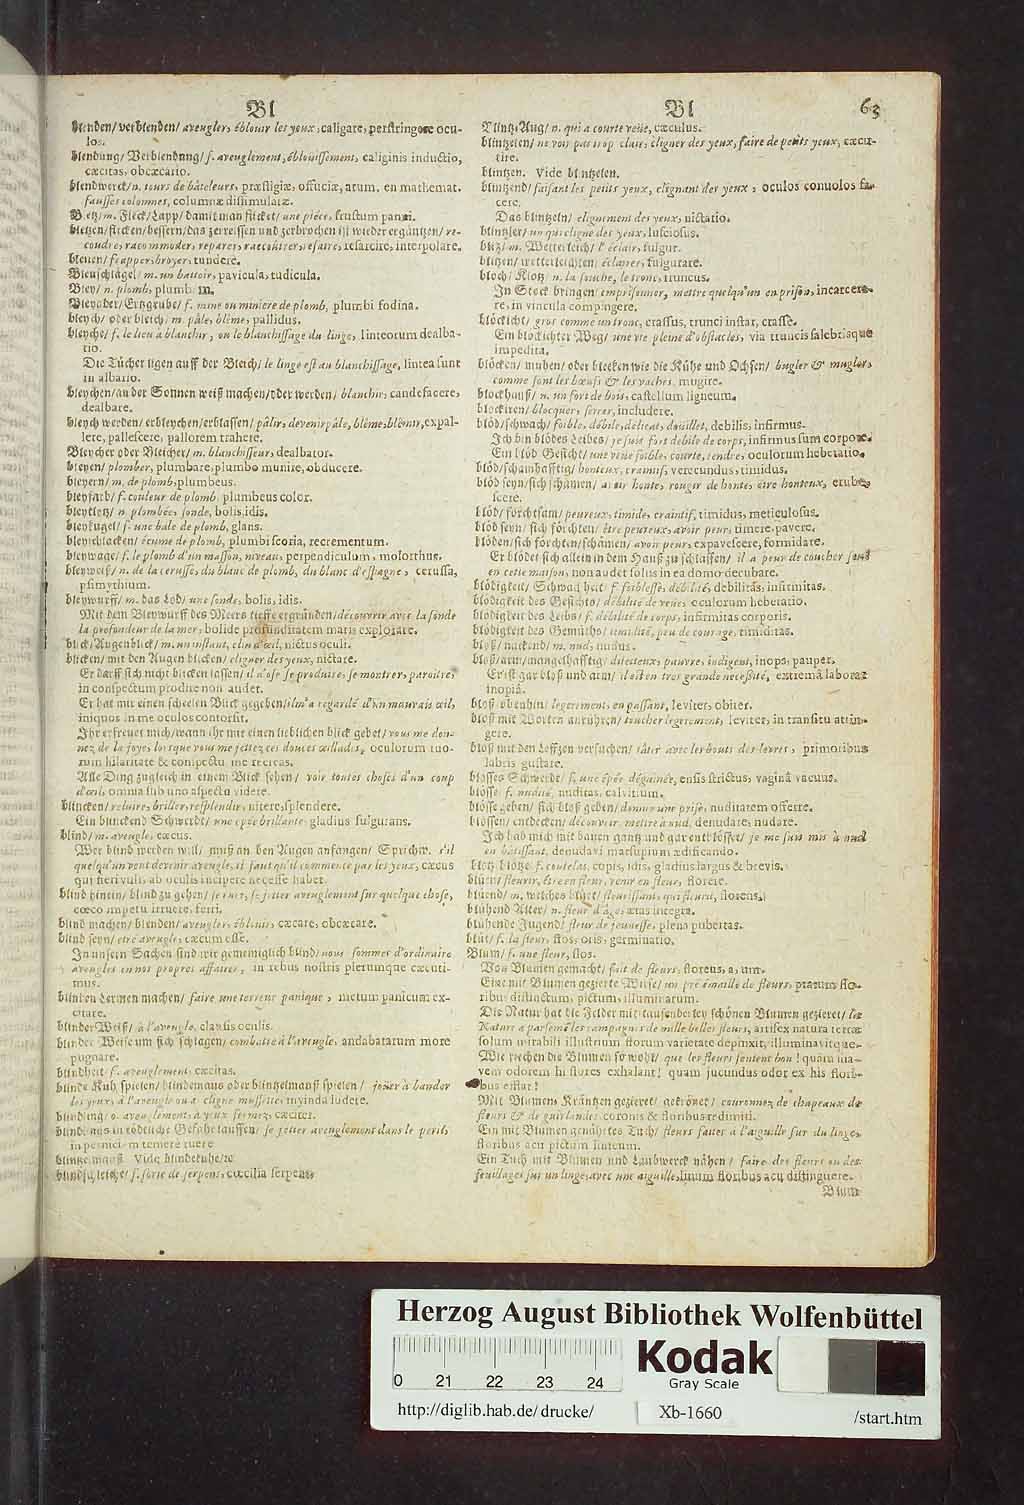 Bl
blenden/ verblenden/ aveugler, éblouir les yeux, caligare, perstringere ocu-
los.
blendung/ Verblendung/ f. aveuglement, éblouissement, caliginis inductio,
cæcitas, obcæcatio.
blendwerck/ n. tours de bâteleurs, præstigiæ, offuciæ, arum. en mathemat.
fausses colonnes, columnæ dissimulatæ.
m. Fleck/ Lapp/ damit man flicket/ une piéce, frustum panni.
bletzen/ flicken/ bessern/ das zerrissen und zerbrochen ist wieder ergäntzen/ re-
coudre, raccommoder, reparer, racoutrer, refaire, resarcire, interpolare.
bleuen/ frapper, broyer, tundere.
Bleuschlägel/ m. un battoir, pavicula, tudicula.
Bley/ n. plomb, plumbum.
Bleyader/ Ertzgrube/ f. mine ou miniere de plomb, plumbi fodina.
bleych/ oder bleich/ m. pâle, blême, pallidus.
bleyche/ f. le lieu à blanchir, ou le blanchissage du linge, linteorum dealba-
tio.
Die Tücher ligen auff der Bleich/ le linge est au blanchissage, lintea sunt
in albario.
bleychen/ an der Sonnen weiß machen/ oder werden/ blanchir, candefacere,
dealbare.
bleych werden/ erbleychen/ erblassen/ pâlir, devenir pâle, blême, blêmir, expal-
lere, pallescere, pallorem trahere.
Bleycher oder Bleicher/ m. blanchisseur, dealbator.
bleyen/ plomber, plumbare, plumbo munire, obducere.
bleyern/ m. de plomb, plumbeus.
bleyfarb/ f. couleur de plomb, plumbeus color.
bleyklotz/ n. plombée, sonde, bolis, idis.
bleykugel/ f. une bale de plomb, glans.
bleyschlacken/ écume de plomb, plumbi scoria, recrementum.
bleywage/ f. le plomb d'un masson, niveau, perpendiculum, molorthus.
bleyweiß/ n. de la cerusse, du blanc de plomb, du blanc d'espagne, cerussa,
psimythium.
bleywurff/ m. das Lod/ une sonde, bolis, idis.
Mit dem Bleywurff des Meers tieffe ergründen/ découvrir avec la sonde
la profondeur de la mer, bolide profunditatem maris explorare.
blick/ Augenblick/ m. un instant, clin d'œil, nictus oculi.
blicken/ mit den Augen blicken/ cligner des yeux, nictare.
Er darff sich nicht blicken lassen/ il n'ose se produire, se montrer, paroître,
in conspectum prodire non audet.
Er hat mir einen scheelen Blick gegeben/ il m'a regardé d'un mauvais œil,
iniquos in me oculos contorsit.
Ihr erfreuet mich/ wann ihr mir einen lieblichen blick gebet/ vous me don-
nez de la joye, lorsque vous me jettez ces douces œillades, oculorum tuo-
rum hilaritate & conspectu me recreas.
Alle Ding zugleich in einem Blick sehen/ voir toutes choses d'un coup
d'œil, omnia sub uno aspectu videre.
blincken/ reluire, briller, resplendir, nitere, splendere.
Ein blinckend Schwerdt/ une epée brillante, gladius fulgurans.
blind/ m. aveugle, cæcus.
Wer blind werden will/ muß an den Augen anfangen/ Sprichw. s'il
quelqu'un veut devenir aveugle, il faut qu'il commence par les yeux, cæcus
qui fieri vult, ab oculis incipere necesse habet.
blind hinein/ blind zu gehen/ se ruer, se jetter aveuglement sur quelque chose,
cœco impetu irruere, ferri.
blind machen/ blenden/ aveugler, éblouir, cæcare, obcæcare.
blind seyn/ etre aveugle, cæcum esse.
In unsern Sachen sind wir gemeiniglich blind/ nous sommes d'ordinaire
aveugles en nos propres affaires, in rebus nostris plerumque cæcuti-
mus.
blinden Lermen machen/ faire une terreur panique, metum panicum ex-
citare.
blinder Weiß/ à l'aveugle, clausis oculis.
blinder Weise um sich schlagen/ combatre à l'aveugle, andabatarum more
pugnare.
blindheit/ f. aveuglement, cæcitas.
blinde Kuh spielen/ blindemaus oder blintzelmauß spielen/ joüer à bander
les yeux, à l'aveugle ou à cligne mussette, myinda ludere.
blindling/ o. aveuglement, à yeux fermez, cæciter.
blindlings in tödtliche Gefahr lauffen/ se jetter aveuglement dans le peril,
in perniciem temere ruere.
blintzemauß. Vide blindekuhe/ ꝛc.
blindschleiche/ f. sorte de serpens, cœcilia serpens

Bl 63
Blintz-Aug/ n. qui a courte veüe, cæculus.
blintzelen/ ne voir pas trop clair, cligner des yeux, faire de petits yeux, cæcu-
tire.
blintzen. Vide blintzelen.
blintzend/ faisant les petits yeux, clignant des yeux, oculos convolos fa-
cere.
Das blintzeln/ clignement des yeux, nictatio.
blintzler/ un qui cligne des yeux, lusciosus.
blitz/ m. Wetterleich/ l'éclair, fulgur.
blitzen/ wetterleichten/ éclairer, fulgurare.
bloch/ Klotz/ n. la souche, le tronc, truncus.
In Stock bringen/ emprisonner, mettre quelqu'un en prison, incarcera-
re, in vincula compingere.
blöcklicht/ gros comme un tronc, crassus, trunci instar, crasse.
Ein blocklichter Weg/ une vie pleine d'obstacles, via truncis salebrisque
impedita.
blöcken/ muhen/ oder bleeken wie die Kühe und Ochsen/ bugler & mugler,
comme font les bœufs & les vaches, mugire.
blockhauß/ n. un fort de bois, castellum ligneum.
blockiren/ blocquer, serrer, includere.
blöd/ schwach/ foible, débile, délicat, douillet, debilis, infirmus.
Ich bin blödes Leibes/ je suis fort debile de corps, infirmus sum corpore.
Ein blöd Gesicht/ une veüe foible, courte, tendre, oculorum hebetatio.
blöd/ schamhafftig/ honteux, craintif, verecundus, timidus.
blöd seyn/ sich schämen/ avoir honte, rouger de honte, être honteux, erube-
scere.
blöd/ forchtsam/ peureux, timide, craintif, timidus, meticulosus.
blöd seyn/ sich förchten/ être peureux, avoir peur, timere, pavere.
blöden/ sich förchten/ schämen/ avoir peur, expavescere, formidare.
Er blödet sich allein in dem Hauß zu schlaffen/ il a peur de coucher seul
en cette maison, non audet solus in ea domo decubare.
blödigkeit/ Schwachheit/ f. foiblesse, débilité, debilitas, infirmitas.
blödigkeit des Gesichts/ débilité de veüe, oculorum hebetatio.
blödigkeit des Leibs/ f. débilité de corps, infirmitas corporis.
blödigkeit des Gemüths/ timidité, peu de courage, timiditas.
bloß/ nackend/ m. nud, nudus.
bloß/ arm/ mangelhafftig/ disetteux, pauvre, indigent, inops, pauper.
Er ist gar bloß und arm/ il est en tres grande necessité, extremâ laborat
inopiâ.
bloß obenhin/ legerement, en passant, leviter, obiter.
bloß mit Worten anrühren/ toucher legerement, leviter, in transitu attin-
gere.
bloß mit den Leffzen versuchen/ tâter avec les bouts des levres, primoribus
labris gustare.
blosses Schwerdt/ f. une épée dégainée, ensis strictus, vaginâ vacuus.
blösse f. nudité, nuditas, calvitium.
blösse geben/ sich bloß geben/ donner une prise, nuditatem offerre.
blössen/ entdecken/ découvrir, mettre à nud, denudare, nudare.
Ich hab mich mit bauen gantz und gar entblösset/ je me suis mis à nud
en bâtissant, denudavi marsupium ædificando.
blotz/ blotze f. coutelas, copis, idis, gladius largus & brevis.
blühen/ fleurir, être en fleur, venir en fleur, florere.
blüend/ m. welches blüet/ fleurissant, qui fleurit, florens.
blühend Alter/ n. fleur d'âge, ætas integra.
blühende Jugend/ fleur de jeunesse, plena pubertas.
blüt/ f. la fleur, flos, oris, germinatio.
Blum/ f. une fleur, flos.
Von Blumen gemacht/ fait de fleurs, floreus, a, um.
Eine mit Blumen gezierte Wiese/ un pré émaillé de fleurs, pratum flo-
ribus distinctum, pictum, illuminatum.
Die Natur hat die Felder mit tausenderley schönen Blumen gezieret/ la
Nature a parsemé les campagnes de mille belles fleurs, artifex natura terræ
solum mirabili illustrium florum varietate depinxit, illuminavitque.
Wie riechen die Blumen so wohl/ que les fleurs sentent bon! quàm sua-
vem odorem hi flores exhalant! quam jucundus odor ex his flori-
bus efflat!
Mit Blumen Kräntzen gezieret/ gekrönet/ couronnez de chapeaux de
fleurs & de guirlandes, coronis & floribus redimiti.
Ein mit Blumen genähetes Tuch/ fleurs faites à l'aiguille sur du linge,
floribus acu pictum linteum.
Ein Tuch mit Blumen und Laubwerck nähen/ faire des fleurs ou des
feuillages sur un linge, avec une aiguille, linum floribus acu distinguere.
Blum

Herzog August Bibliothek Wolfenbüttel
Kodak
Gray Scale
0 21 22 23 24
http://diglib.hab.de/drucke/ Xb-1660 /start.htm